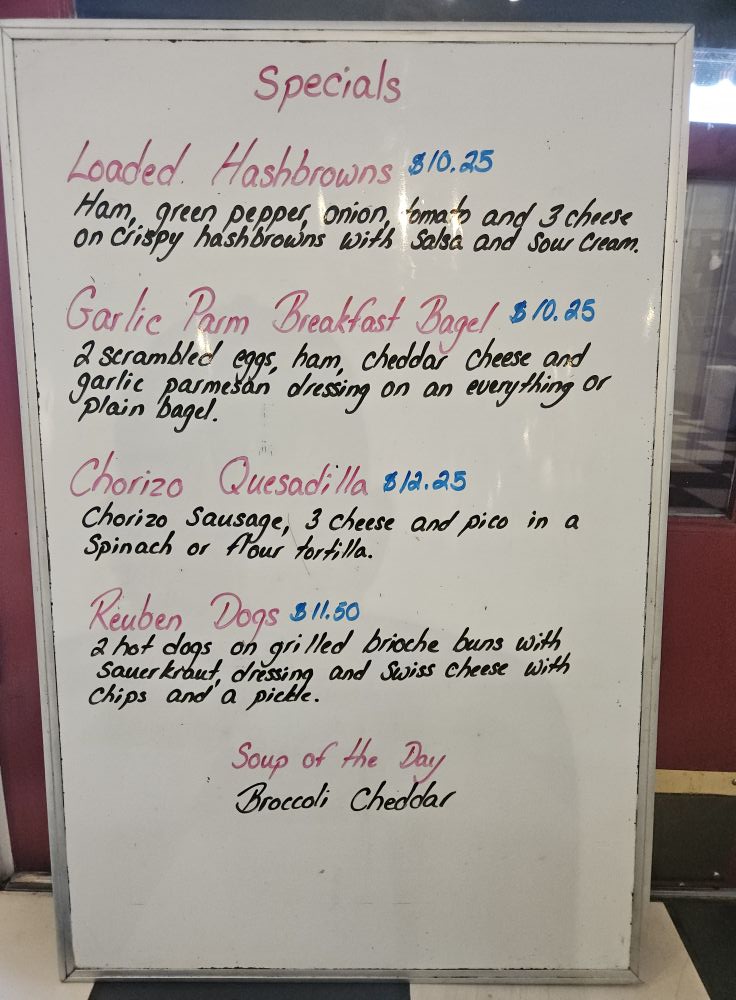 Specials
Loaded Hashbrowns $10.25
Ham, green pepper, onion, tomato and 3 cheese
on crispy hashbrowns with salsa and sour cream.
Garlic Parm Breakfast Bagel $10.25
2 scrambled eggs, ham, cheddar cheese and
garlic parmesan dressing on an everything or
plain bagel.
Chorizo Quesadilla $12.25
Chorizo Sausage, 3 cheese and pico in a
Spinach or flour tortilla.
Reuben Dogs $11.50
2 hot dogs on grilled brioche buns with
sauerkraut, dressing and Swiss cheese with
chips and a pickle.
Soup of the Day
Broccoli Cheddar